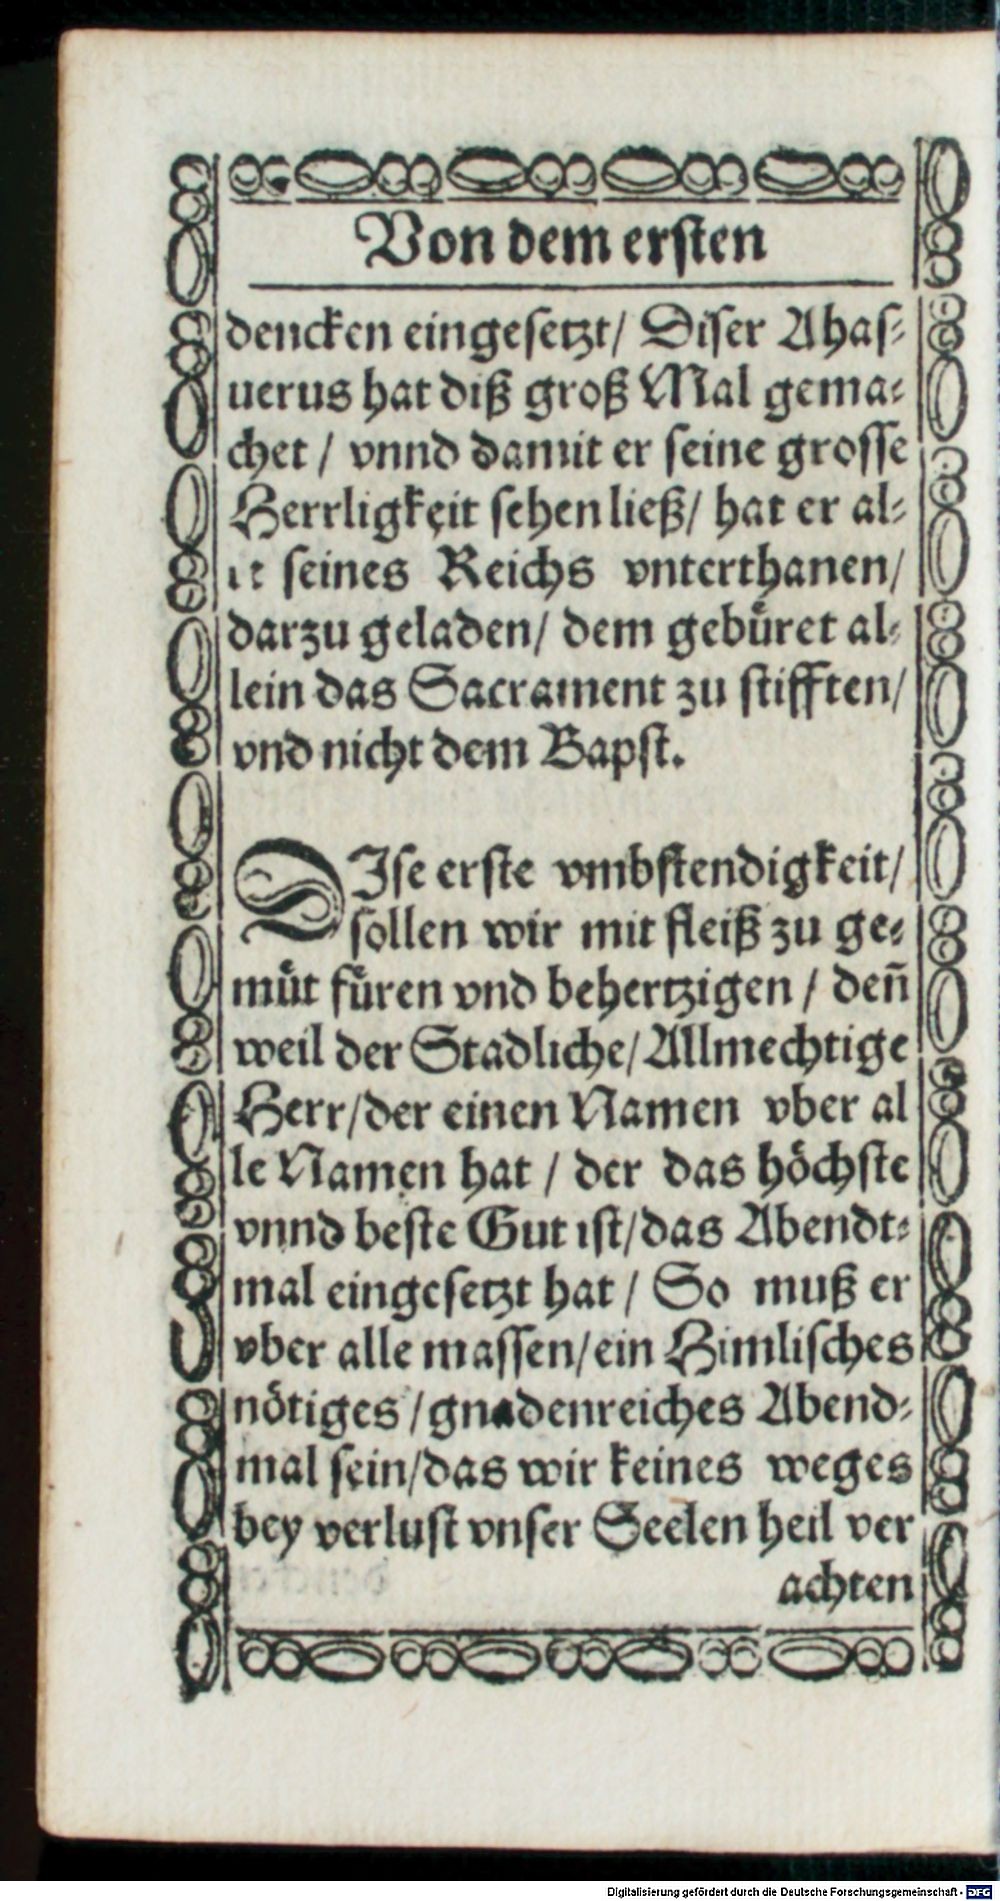 Von dem ersten
dencken eingesetzt/ Diser Ahas⸗
uerus hat diß groß Mal gema⸗
chet / vnnd damit er seine grosse
Herrligkeit sehen ließ/ hat er al⸗
seines Reichs vnterthanen/
darzu geladen/ dem gebüret al⸗
lein das Sacrament zu stifften/
vnd nicht dem Bapst.
DIse erste vmbstendigkeit/
sollen wir mit fleiß zu ge⸗
müt füren vnd behertzigen / deñ
weil der Stadliche/ Allmechtige
Herr/der einen Namen vber al
le Namen hat / der das höchste
vnnd beste Gut ist/das Abendt⸗
mal eingesetzt hat / So muß er
vber alle massen/ein Himlisches
nötiges /gnadenreiches Abend⸗
mal sein/das wir keines weges
bey verlust vnser Seelen heil ver
achten
Digitalisierung gefördert durch die Deutsche Forschungsgemeinschaft - DFG